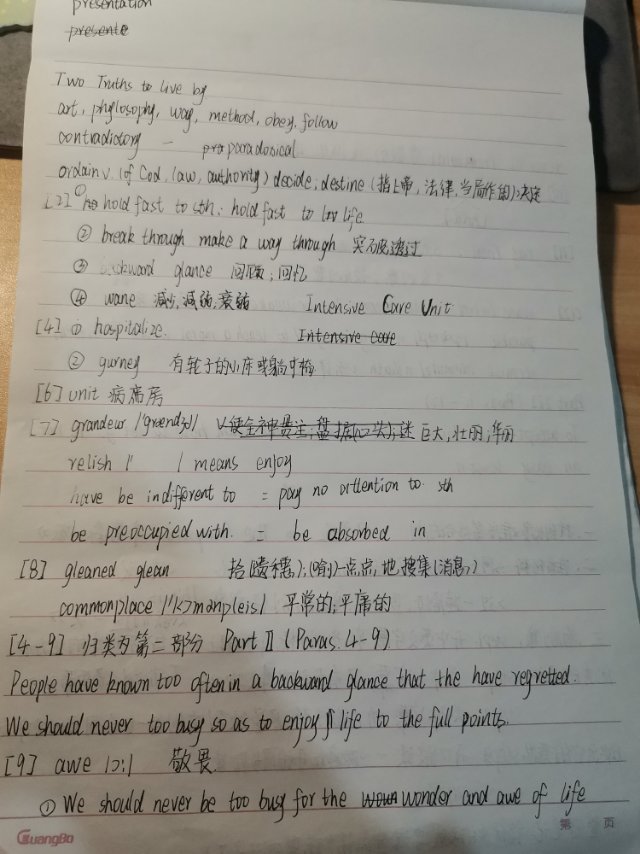 presentation
presente
Two Truths to live by
art, phylosophy, way, method, obey, follow
contradictory — paradosical
ordain v. (of God, law, authority) decide; destine (指上帝, 法律, 当局作用):决定
[2] ① hold fast to sth: hold fast to life
② break through make a way through 突破, 透过
③ backward glance 回顾; 回忆
④ wane 减少, 减弱, 衰弱 Intensive Care Unit
[4] ① hospitalize. Intensive care
② gurney 有轮子的小床或躺
[6] unit 病房
[7] grandeur 巨大, 壮丽, 华丽
relish / / means enjoy
have be indifferent to = pay no attention to sth
be preoccupied with. = be absorbed in
[8] gleaned glean 拾 一点点, 地搜集(消息)
commonplace 平常的; 平庸的
[4-9] 归类为第二部分 Part Ⅱ (Paras. 4-9)
People have known too often in a backward glance that the have regretted.
We should never too busy so as to enjoy life to the full points.
[9] awe /ɔ:/ 敬畏
① We should never be too busy for the wonder and awe of life
GuangBo
第 页